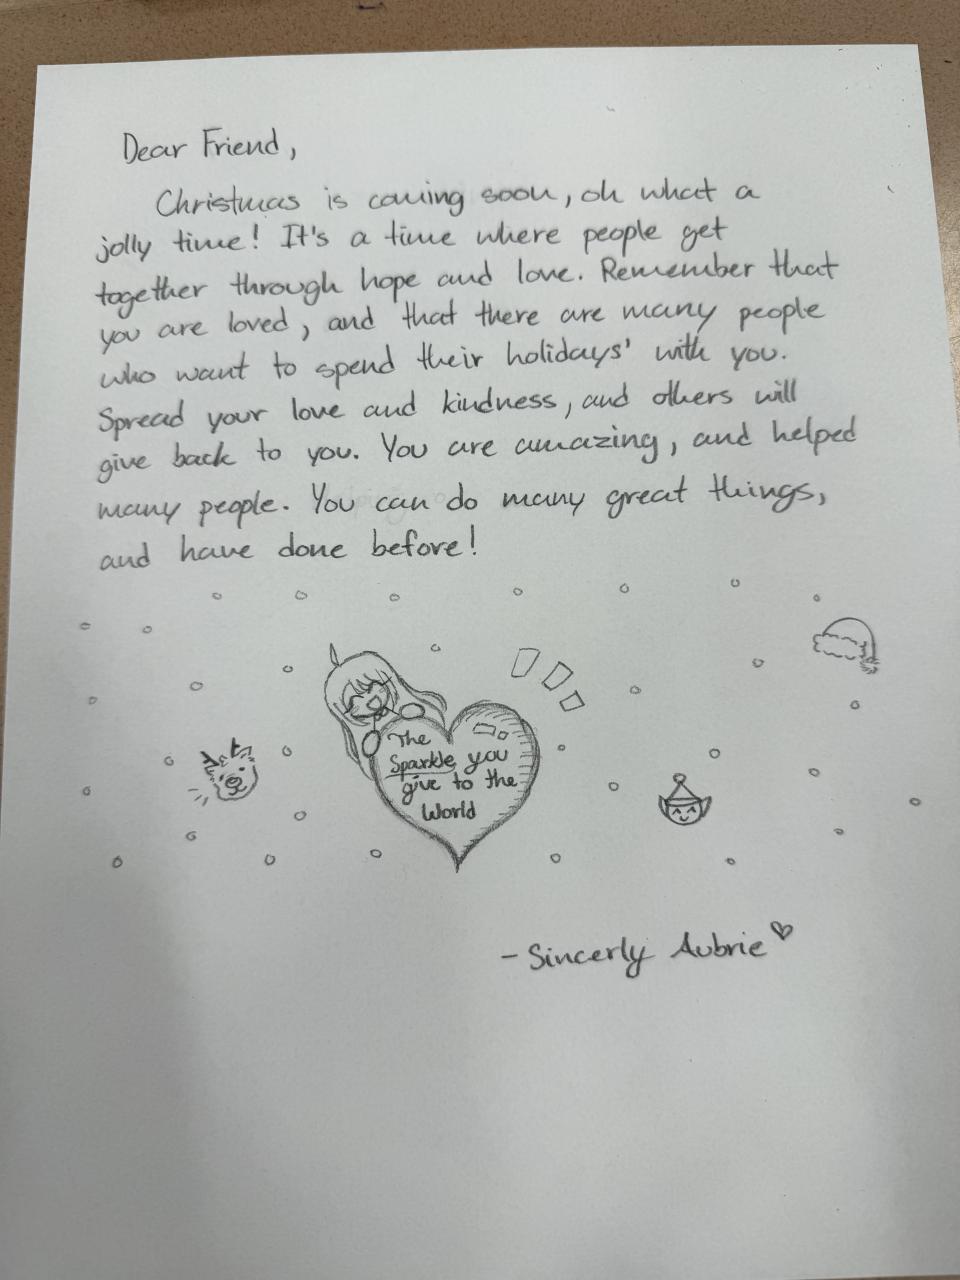 Dear Friend,
Christmas is coming soon, oh what a
jolly time! It's a time where people get
together through hope and love. Remember that
you are loved, and that there are many people
who want to spend their holidays' with you.
Spread your love and kindness, and others will
give back to you. You are amazing, and helped
many people. You can do many great things,
and have done before!
The
Sparkle you
give to the
World
- Sincerly Aubrie